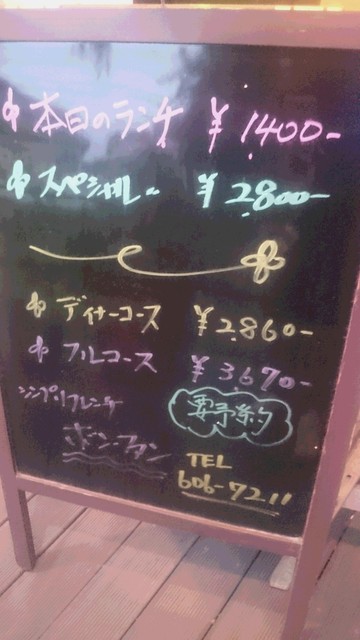 本日のランチ ¥1400-
スペシャル 〃 ¥2800-
ディナーコース ¥2860-
フルコース ¥3670-
要予約
シンプリフレンチ
ボンファン
TEL
606-7211